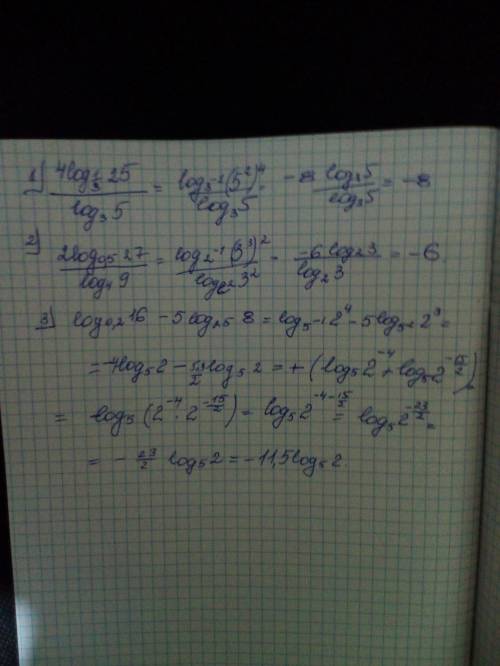 1) 4log_{1/3} 25 / log_3 5 = log_{3^{-1}} (5^2)^4 / log_3 5 = -8 log_3 5 / log_3 5 = -8
2) 2log_{0,5} 27 / log_4 9 = log_{2^{-1}} (3^3)^2 / log_{2^2} 3^2 = -6 log_2 3 / log_2 3 = -6
3) log_{0,2} 16 - 5log_{25} 8 = log_{5^{-1}} 2^4 - 5log_{5^2} 2^3 =
= -4log_5 2 - 15/2 log_5 2 = + (log_5 2^{-4} + log_5 2^{-15/2}) =
= log_5 (2^{-4} · 2^{-15/2}) = log_5 2^{-4-15/2} = log_5 2^{-23/2} =
= - 23/2 log_5 2 = -11,5 log_5 2.